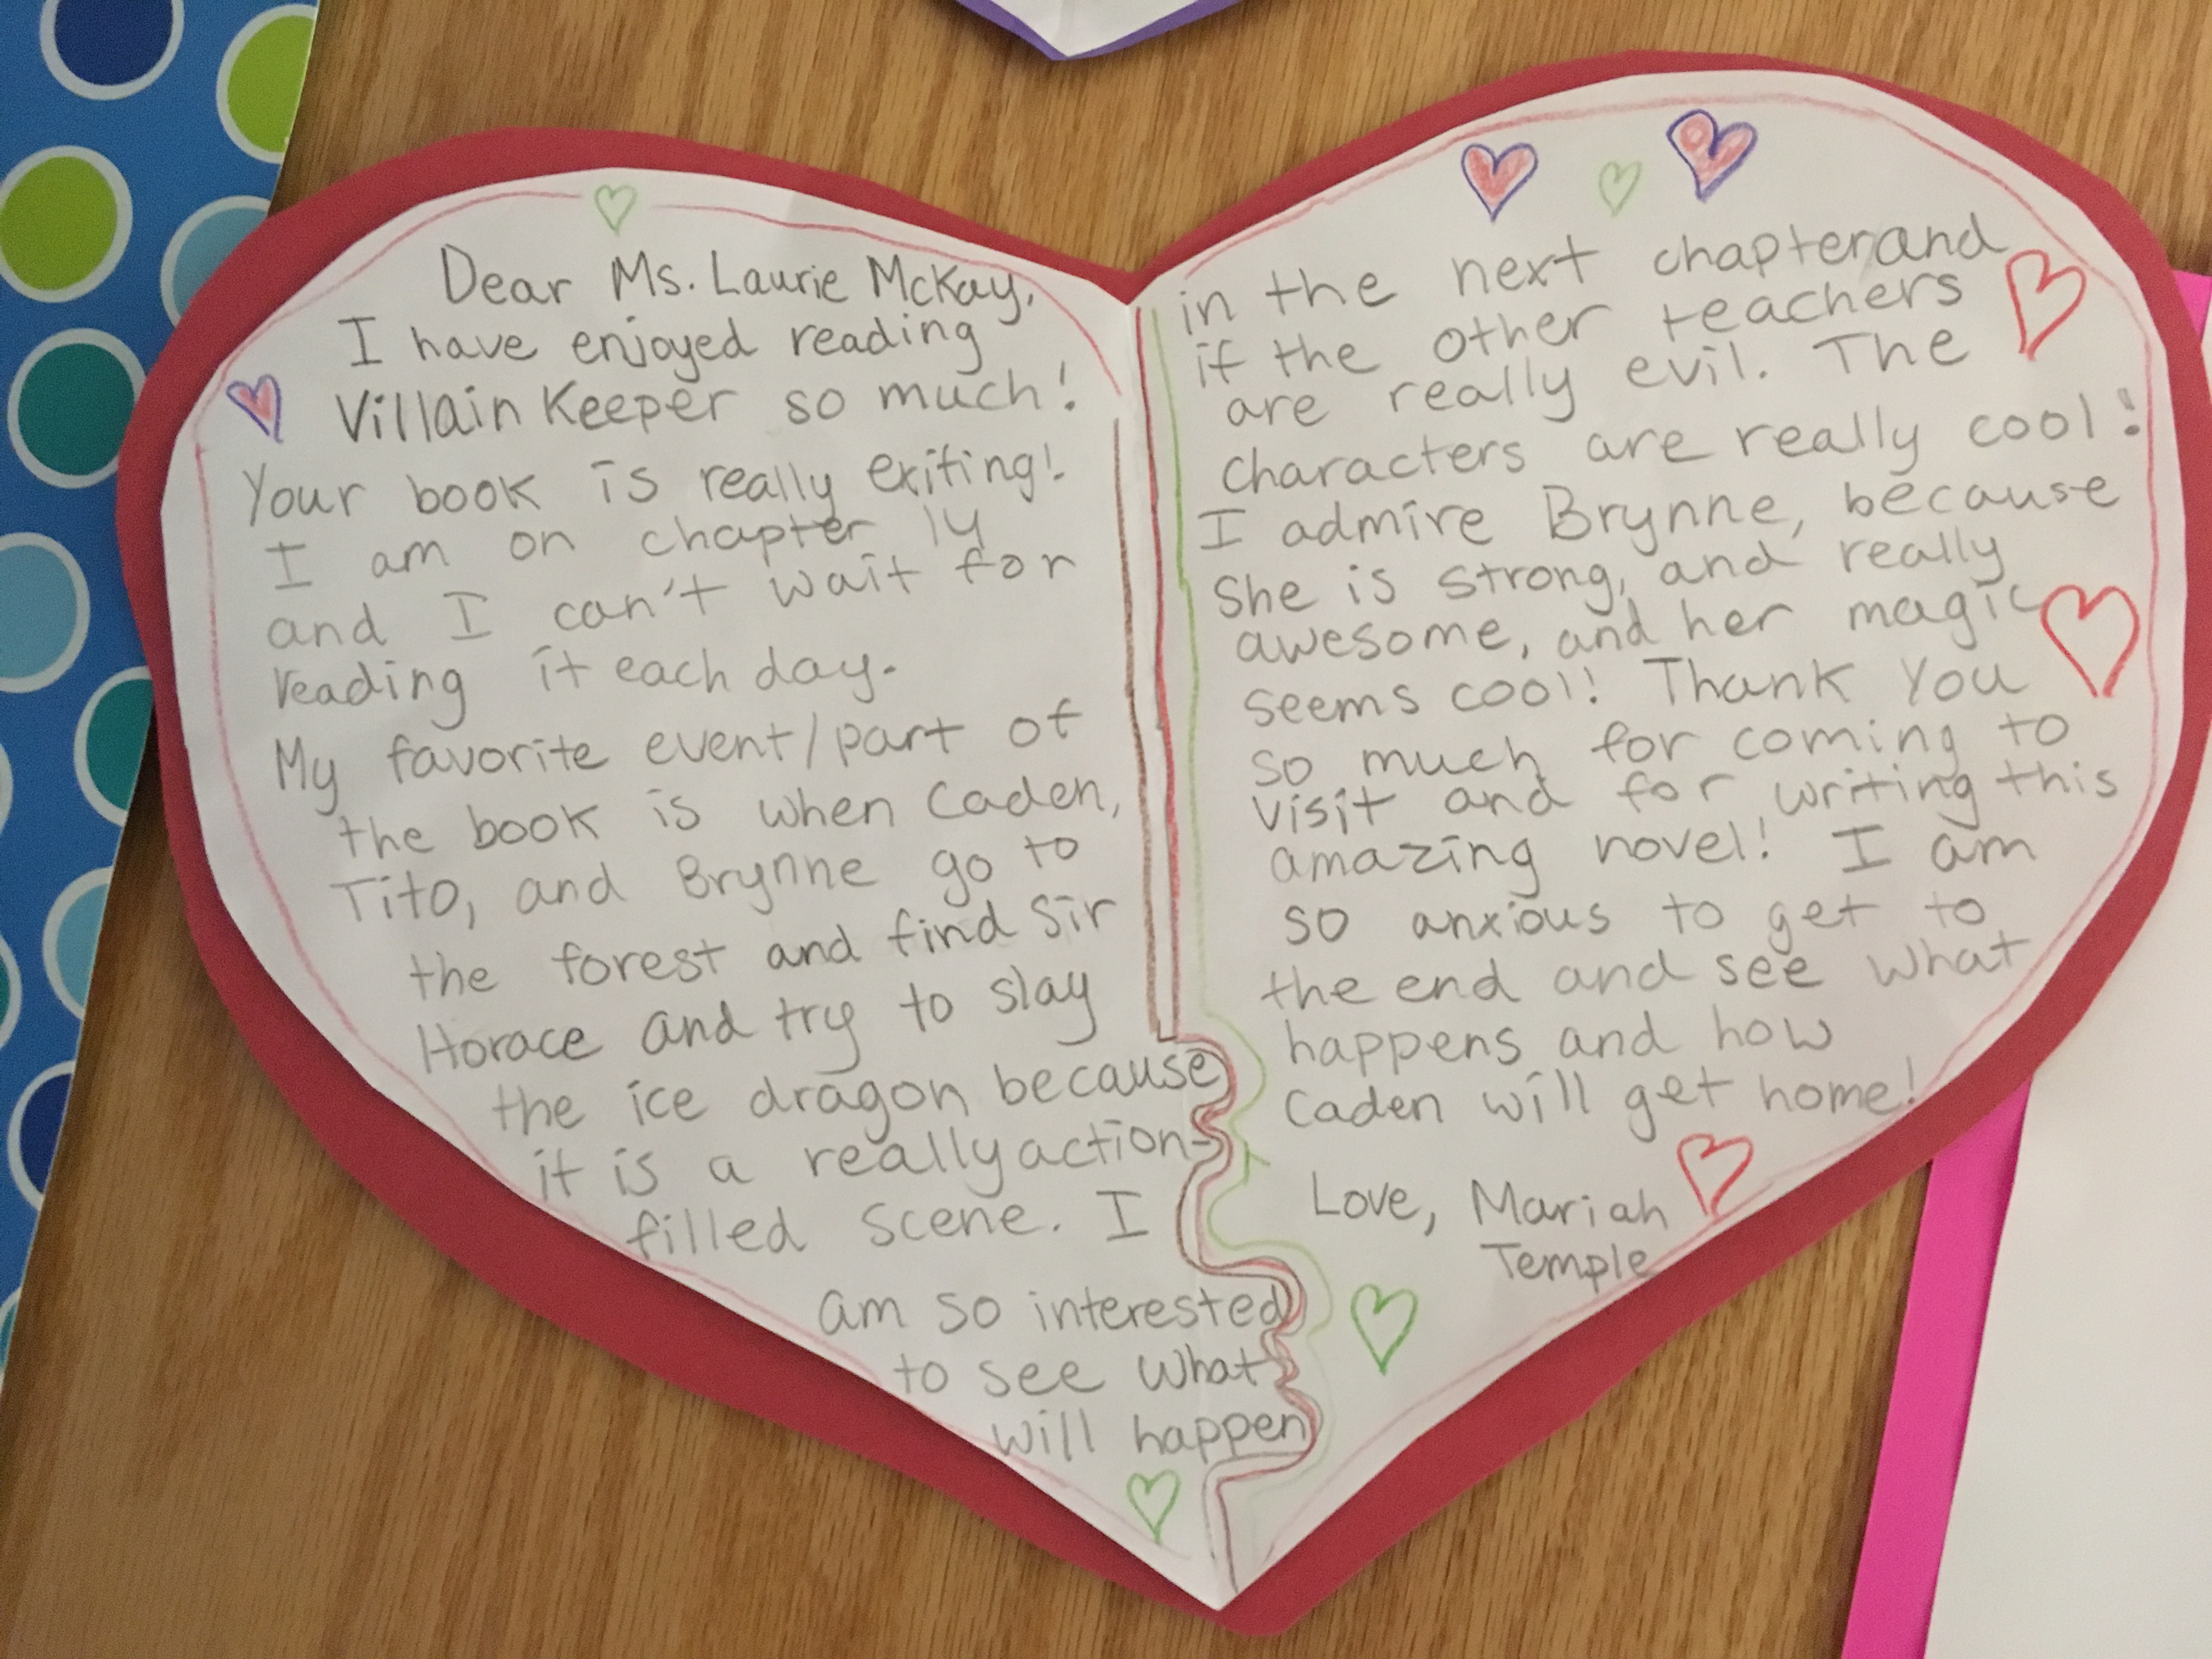 Dear Ms. Laurie McKay,
I have enjoyed reading
Villain Keeper so much!
Your book is really exiting!
I am on chapter 14
and I can't wait for
reading it each day.
My favorite event/part of
the book is when Caden,
Tito, and Brynne go to
the forest and find Sir
Horace and try to slay
the ice dragon because
it is a really action-
filled scene. I
am so interested
to see what
will happen
in the next chapter and
if the other teachers
are really evil. The
characters are really cool!
I admire Brynne, because
She is strong, and really
awesome, and her magic
seems cool! Thank You
so much for coming to
visit and for writing this
amazing novel! I am
so anxious to get to
the end and see what
happens and how
Caden will get home!
Love, Mariah
Temple